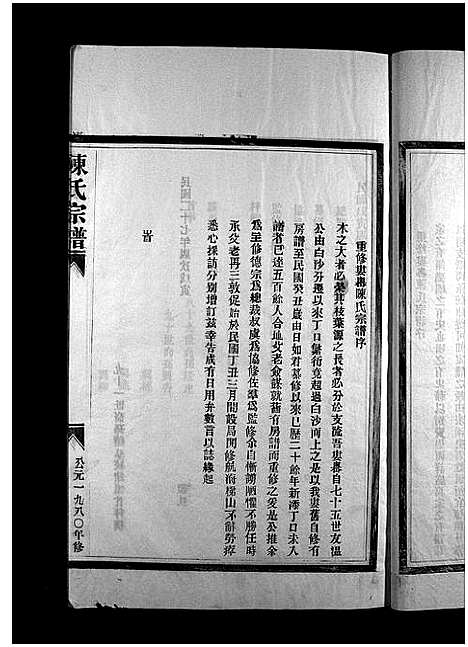 重修婁壽陳氏宗譜序
木之大者必榮其枝葉源之長者必分於支流吾婁壽自七十五世友溫
公由白沙分遷以來丁口儲衍竟超過白沙而上之是以我婁舊自修有
房譜至民國癸丑歲由日如君纂修以來已歷二十餘年新添丁口未入
譜者已達五百餘人合地父老僉謀就舊有房譜而重修之爰是公推余
為至修德宗為總裁叔虞為協修佐為監修余自慚謭陋懼不勝任時
承父老再三敦促始於民國丁丑三月開設局開修航海梯山不辭勞瘁
悉心採訪分別增訂茲幸告成有日用弁數言以誌緣起
陳氏宗譜
公元一九八〇年修